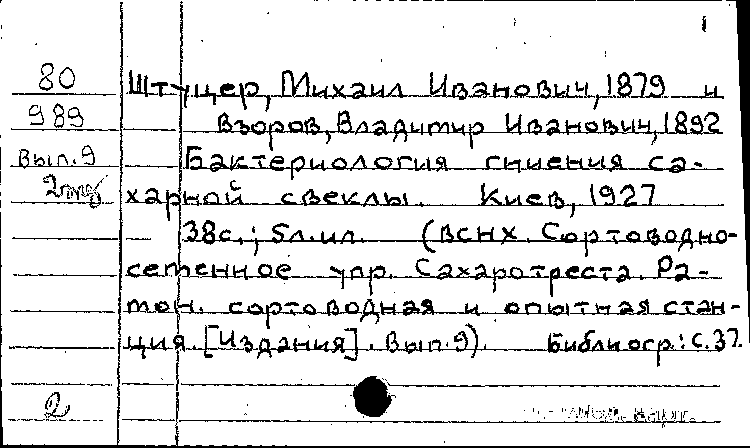 1
80 Штуцер, Михаил Иванович, 1879 и
989 Взоров, Владимир Иванович, 1892
Вып. 9 Бактериология гниения са-
харной свеклы. Киев, 1927
38с.; 5л.ил. (ВСНХ. Сортоводно-
семенное упр. Сахаротреста. Ра-
мон. сортоводная и опытная стан-
ция. [Издания]. Вып. 9). Библиогр.: с. 37.
2